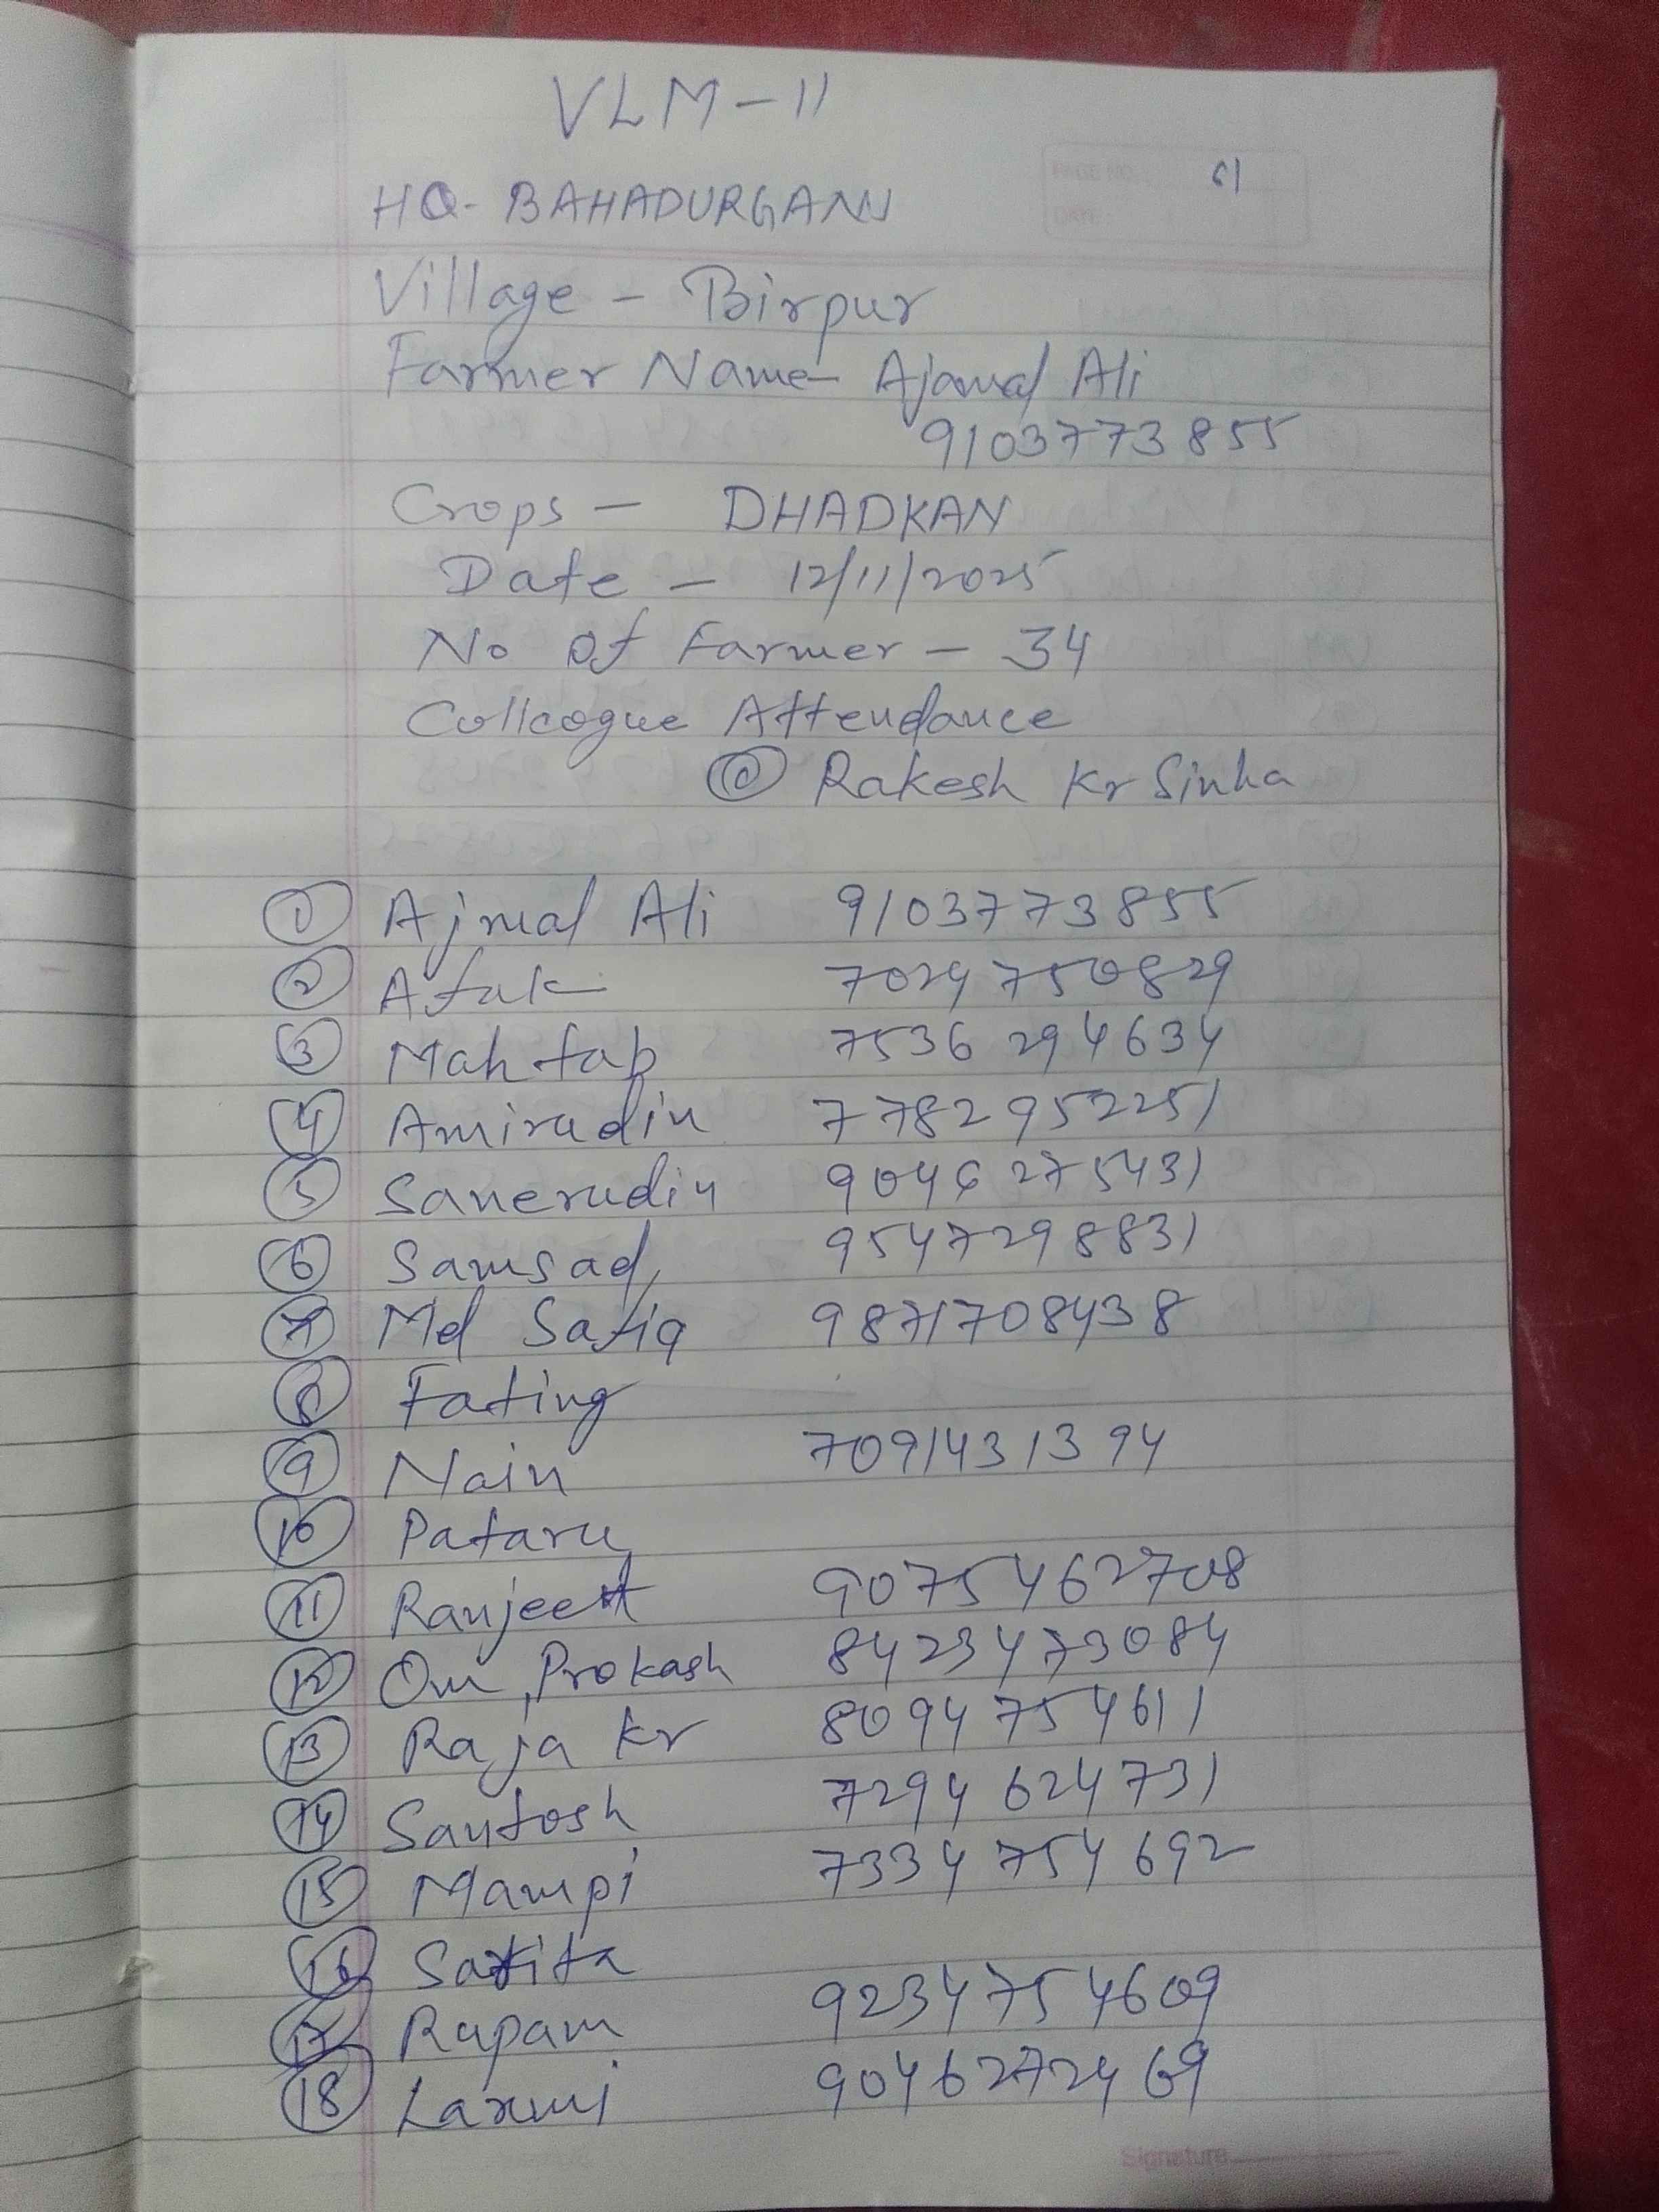 VLM-11
61
PAGE NO.:
DATE:
HQ- BAHADURGANJ
Village - Birpur
Farmer Name- Ajamal Ali
9103773855
Crops - DHADKAN
Date - 12/11/2025
No Of Farmer - 34
Colleogue Attendance
@ Rakesh Kr Sinha
1 Ajmal Ali 9103773855
2 Afak 7024750829
3 Mahtab 7536294634
4 Amirudin 7782952251
5 Sanerudin 9046275431
6 Samsad 9547298831
7 Md Safiq 9871708438
8 Fating
9 Nain 7091431394
10 Pataru
11 Ranjeet 9075462708
12 Om Prokash 8423473084
13 Raja Kr 8094754611
14 Santosh 7294624731
15 Mampi 7334754692
16 Sarita
17 Rupam 9234754609
18 Laxmi 9046272469
Signature